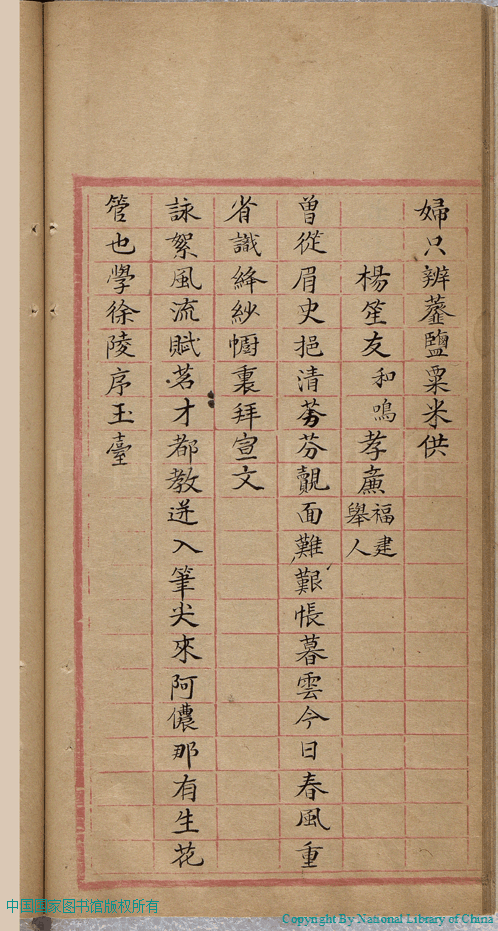 婦只辨虀鹽粟米供
楊笙友和鳴孝廉福建舉人
曾從眉史挹清芬芬覿面難艱悵暮雲今日春風重
省識絳紗㡡裏拜宣文
詠絮風流賦茗才都教迸入筆尖來阿儂那有生花
管也學徐陵序玉臺
中国国家图书馆版权所有
Copyright By National Library of China